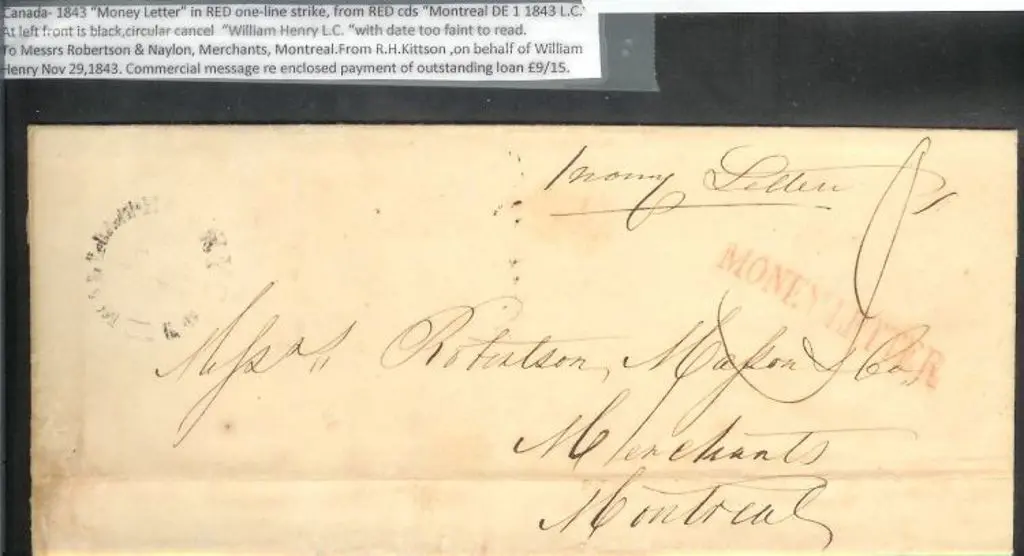 Canada- 1843 "Money Letter" in RED one-line strike, from RED cds "Montreal DE 1 1843 L.C.'
At left front is black,circular cancel "William Henry L.C. "with date too faint to read.
To Messrs Robertson & Naylon, Merchants, Montreal.From R.H.Kittson ,on behalf of William
Henry Nov 29,1843. Commercial message re enclosed payment of outstanding loan £9/15.
Money Letter
MONEY LETTER
Messrs Robertson, Masson & Co,
Merchants
Montreal